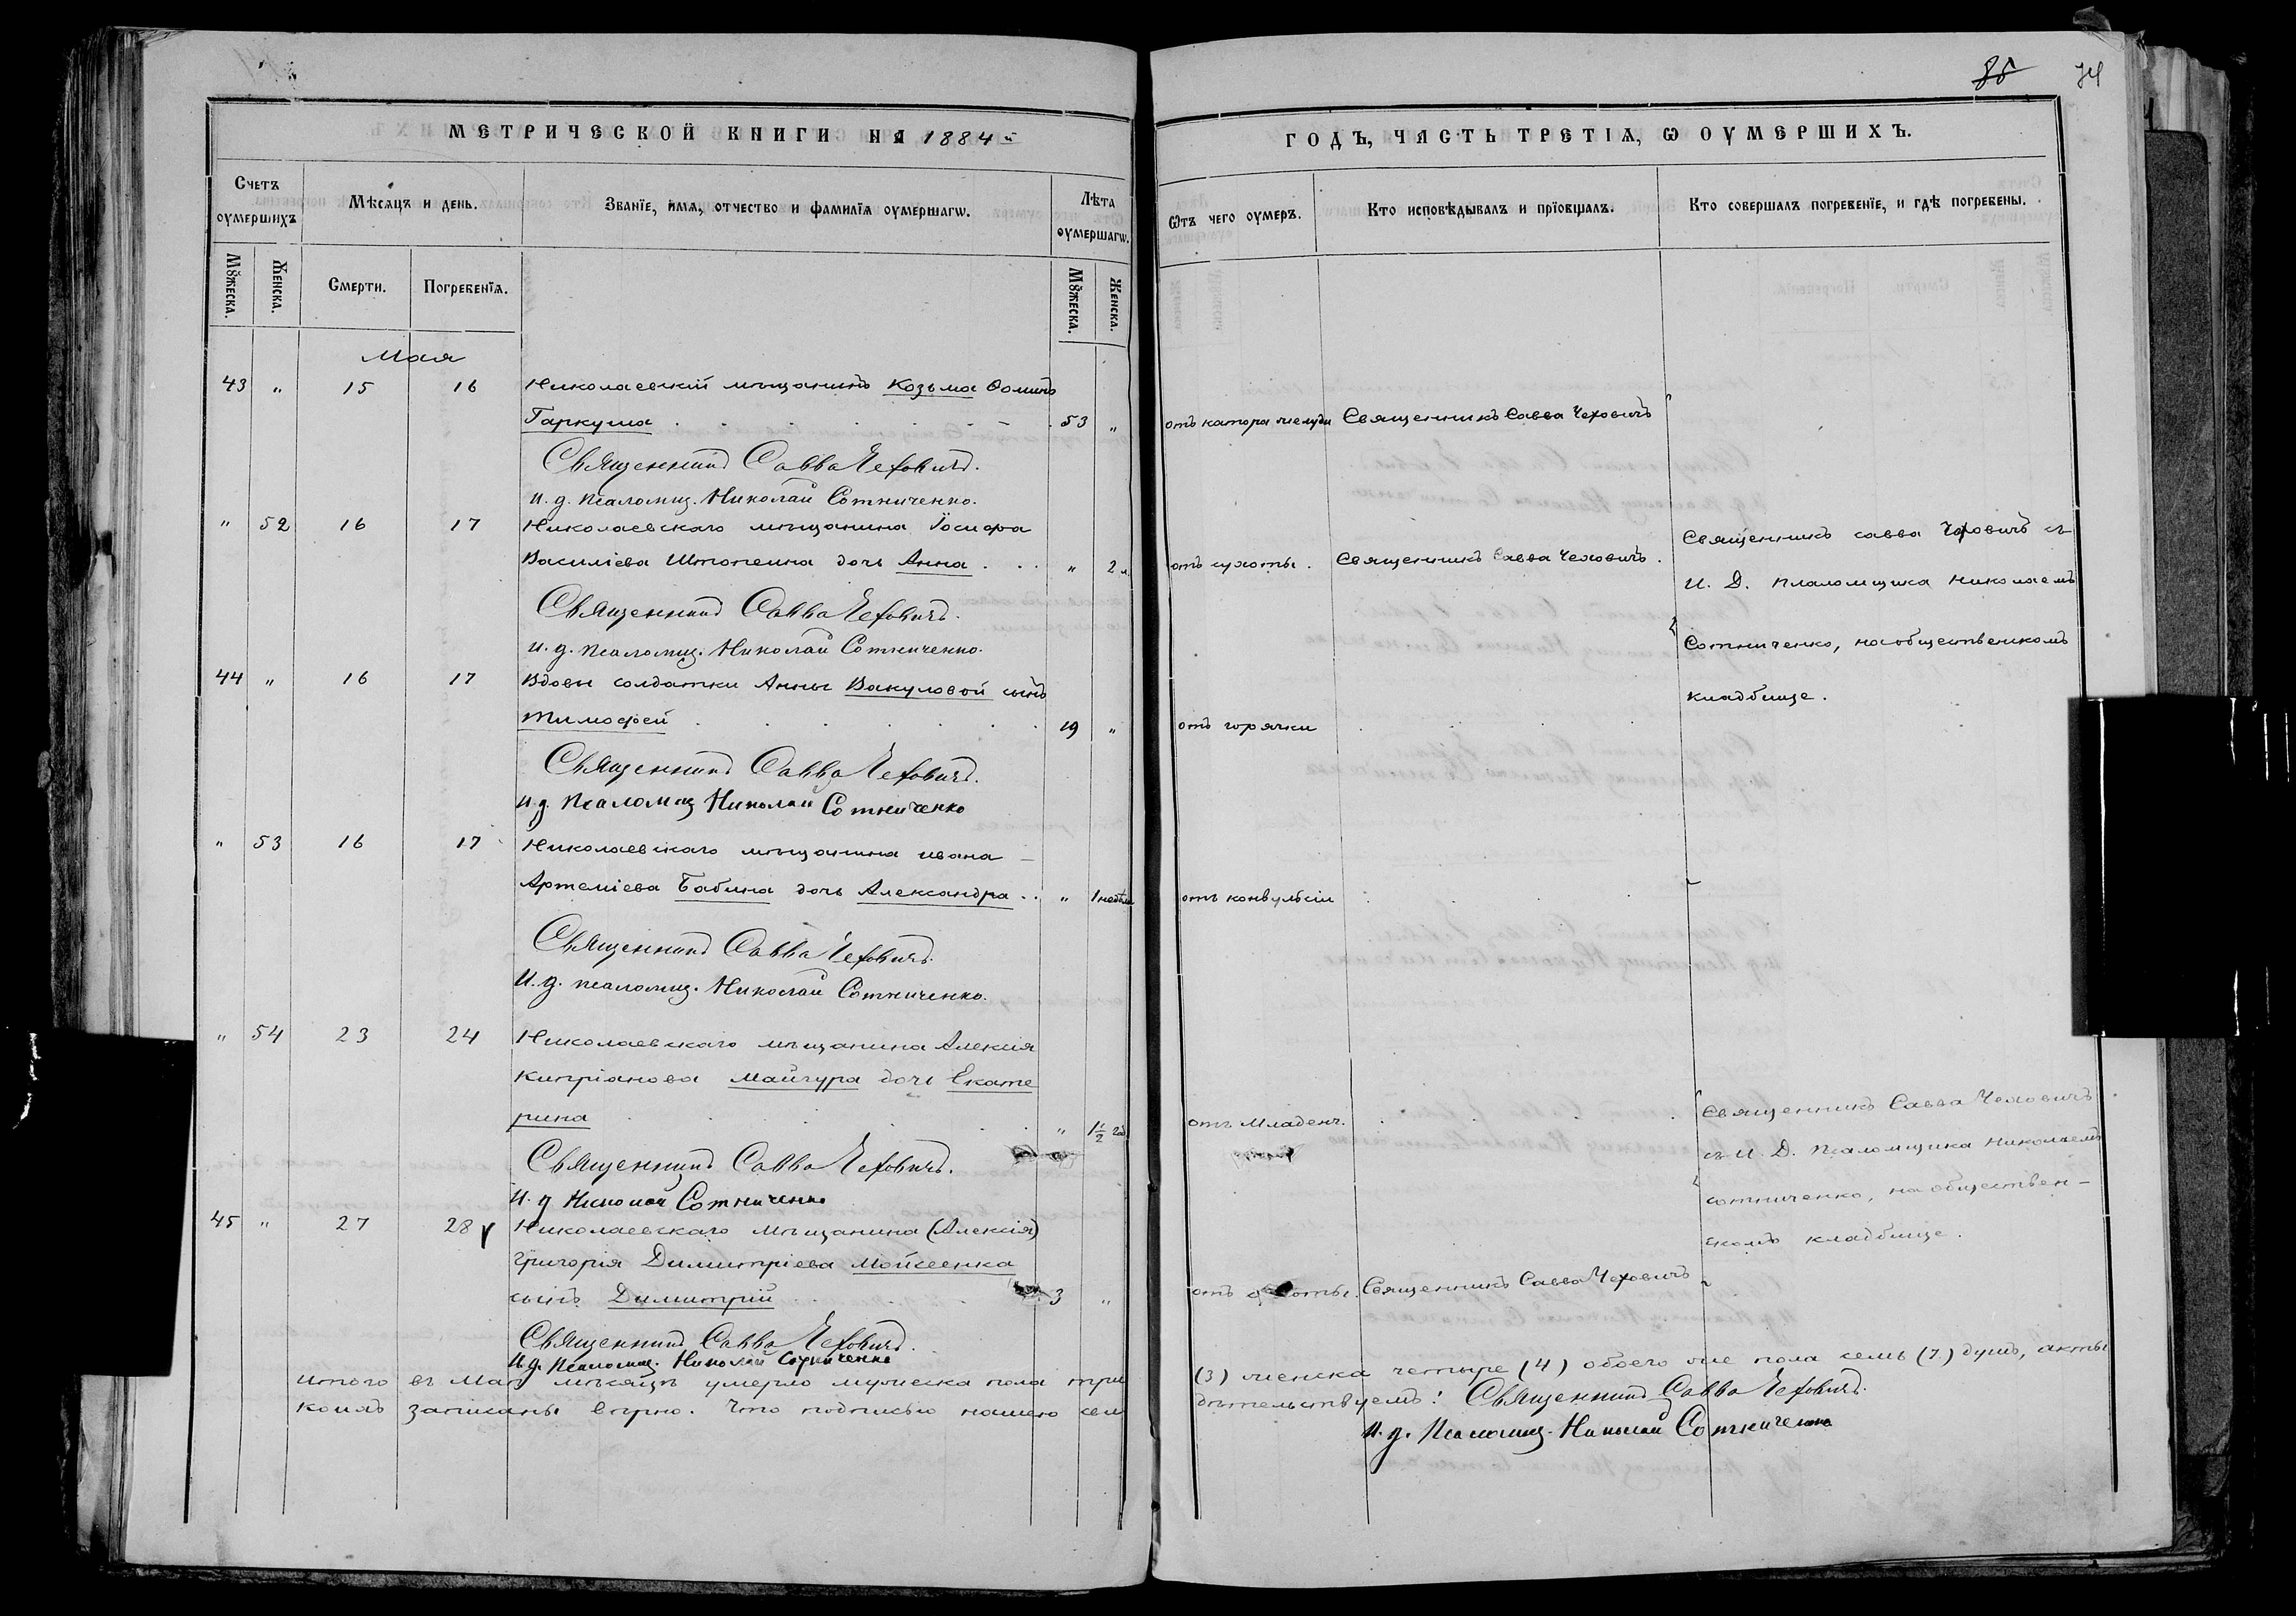 85 74
МЕТРИЧЕСКОЙ КНИГИ НА 1884й
ГОДЪ, ЧАСТЬ ТРЕТІѦ, Ѡ ОУМЕРШИХЪ.
Счетъ оумершихъ
Мѣсяцъ и день.
Званїе, имѧ, отчество и фамилїѧ оумершагѡ.
Лѣта оумершагѡ.
Ѿтъ чего оумеръ.
Кто исповѣдывалъ и прїовщалъ.
Кто совершалъ погребенїе, и гдѣ погребены.
Мꙋжеска.
Женска.
Смерти.
Погребенїѧ.
Мꙋжеска.
Женска.
Мая
43 " 15 16 Николаевскій мѣщанинъ Козьма Ѳоминъ
Гаркуша 53 " отъ катара желудк Священникъ Савва Чехович
Священникъ Савва Чеховичъ.
и. д. псаломщ. Николай Сотниченко.
" 52 16 17 Николаевскаго мѣщанина Іосифа
Василіева дочь Анна " 2 л. отъ сухоты. Священникъ Савва Чеховичъ.
Священникъ Савва Чеховичъ.
и. д. псаломщ. Николай Сотниченко.
Священникъ савва Чеховичъ съ
И. Д. псаломщика Николаемъ
Сотниченко, на общественномъ
кладбище.
44 " 16 17 Вдовы солдатки Анны Вакуловой сынъ
Тимофей 19 " отъ горячки
Священникъ Савва Чеховичъ.
и. д. Псаломщ Николай Сотниченко
" 53 16 17 Николаевскаго мѣщанина ивана
Артеміева Бабина дочь Александра " 1 недѣли отъ конвульсіи
Священникъ Савва Чеховичъ.
И. д. псаломщ. Николай Сотниченко.
" 54 23 24 Николаевскаго мѣщанина Алексія
Кипріанова Майгура дочь Екате
рина " 1 1/2 год отъ Младенч.
Священникъ Савва Чеховичъ.
И. д Николай Сотниченко
Священникъ Савва Чеховичъ
съ И. Д. Псаломщика Николаемъ
сотниченко, на обществен-
номъ кладбище.
45 " 27 28 Николаевскаго мѣщанина (Алексія)
Григорія Димитріева Мойсеенка
сынъ Димитрій 3 " отъ Священникъ Савва Чеховичъ
Священникъ Савва Чеховичъ.
И. д. Псаломщ. Николай Сотниченко
Итого въ Маѣ мѣсяцѣ умерло мужеска пола три (3) женска четыре (4) обоего же пола семь (7) душъ, акты
коимъ записаны вѣрно. Что подписью нашею сви дѣтельствуемъ: Священникъ Савва Чеховичъ.
И. д. Псаломщ. Николай Сотниченко